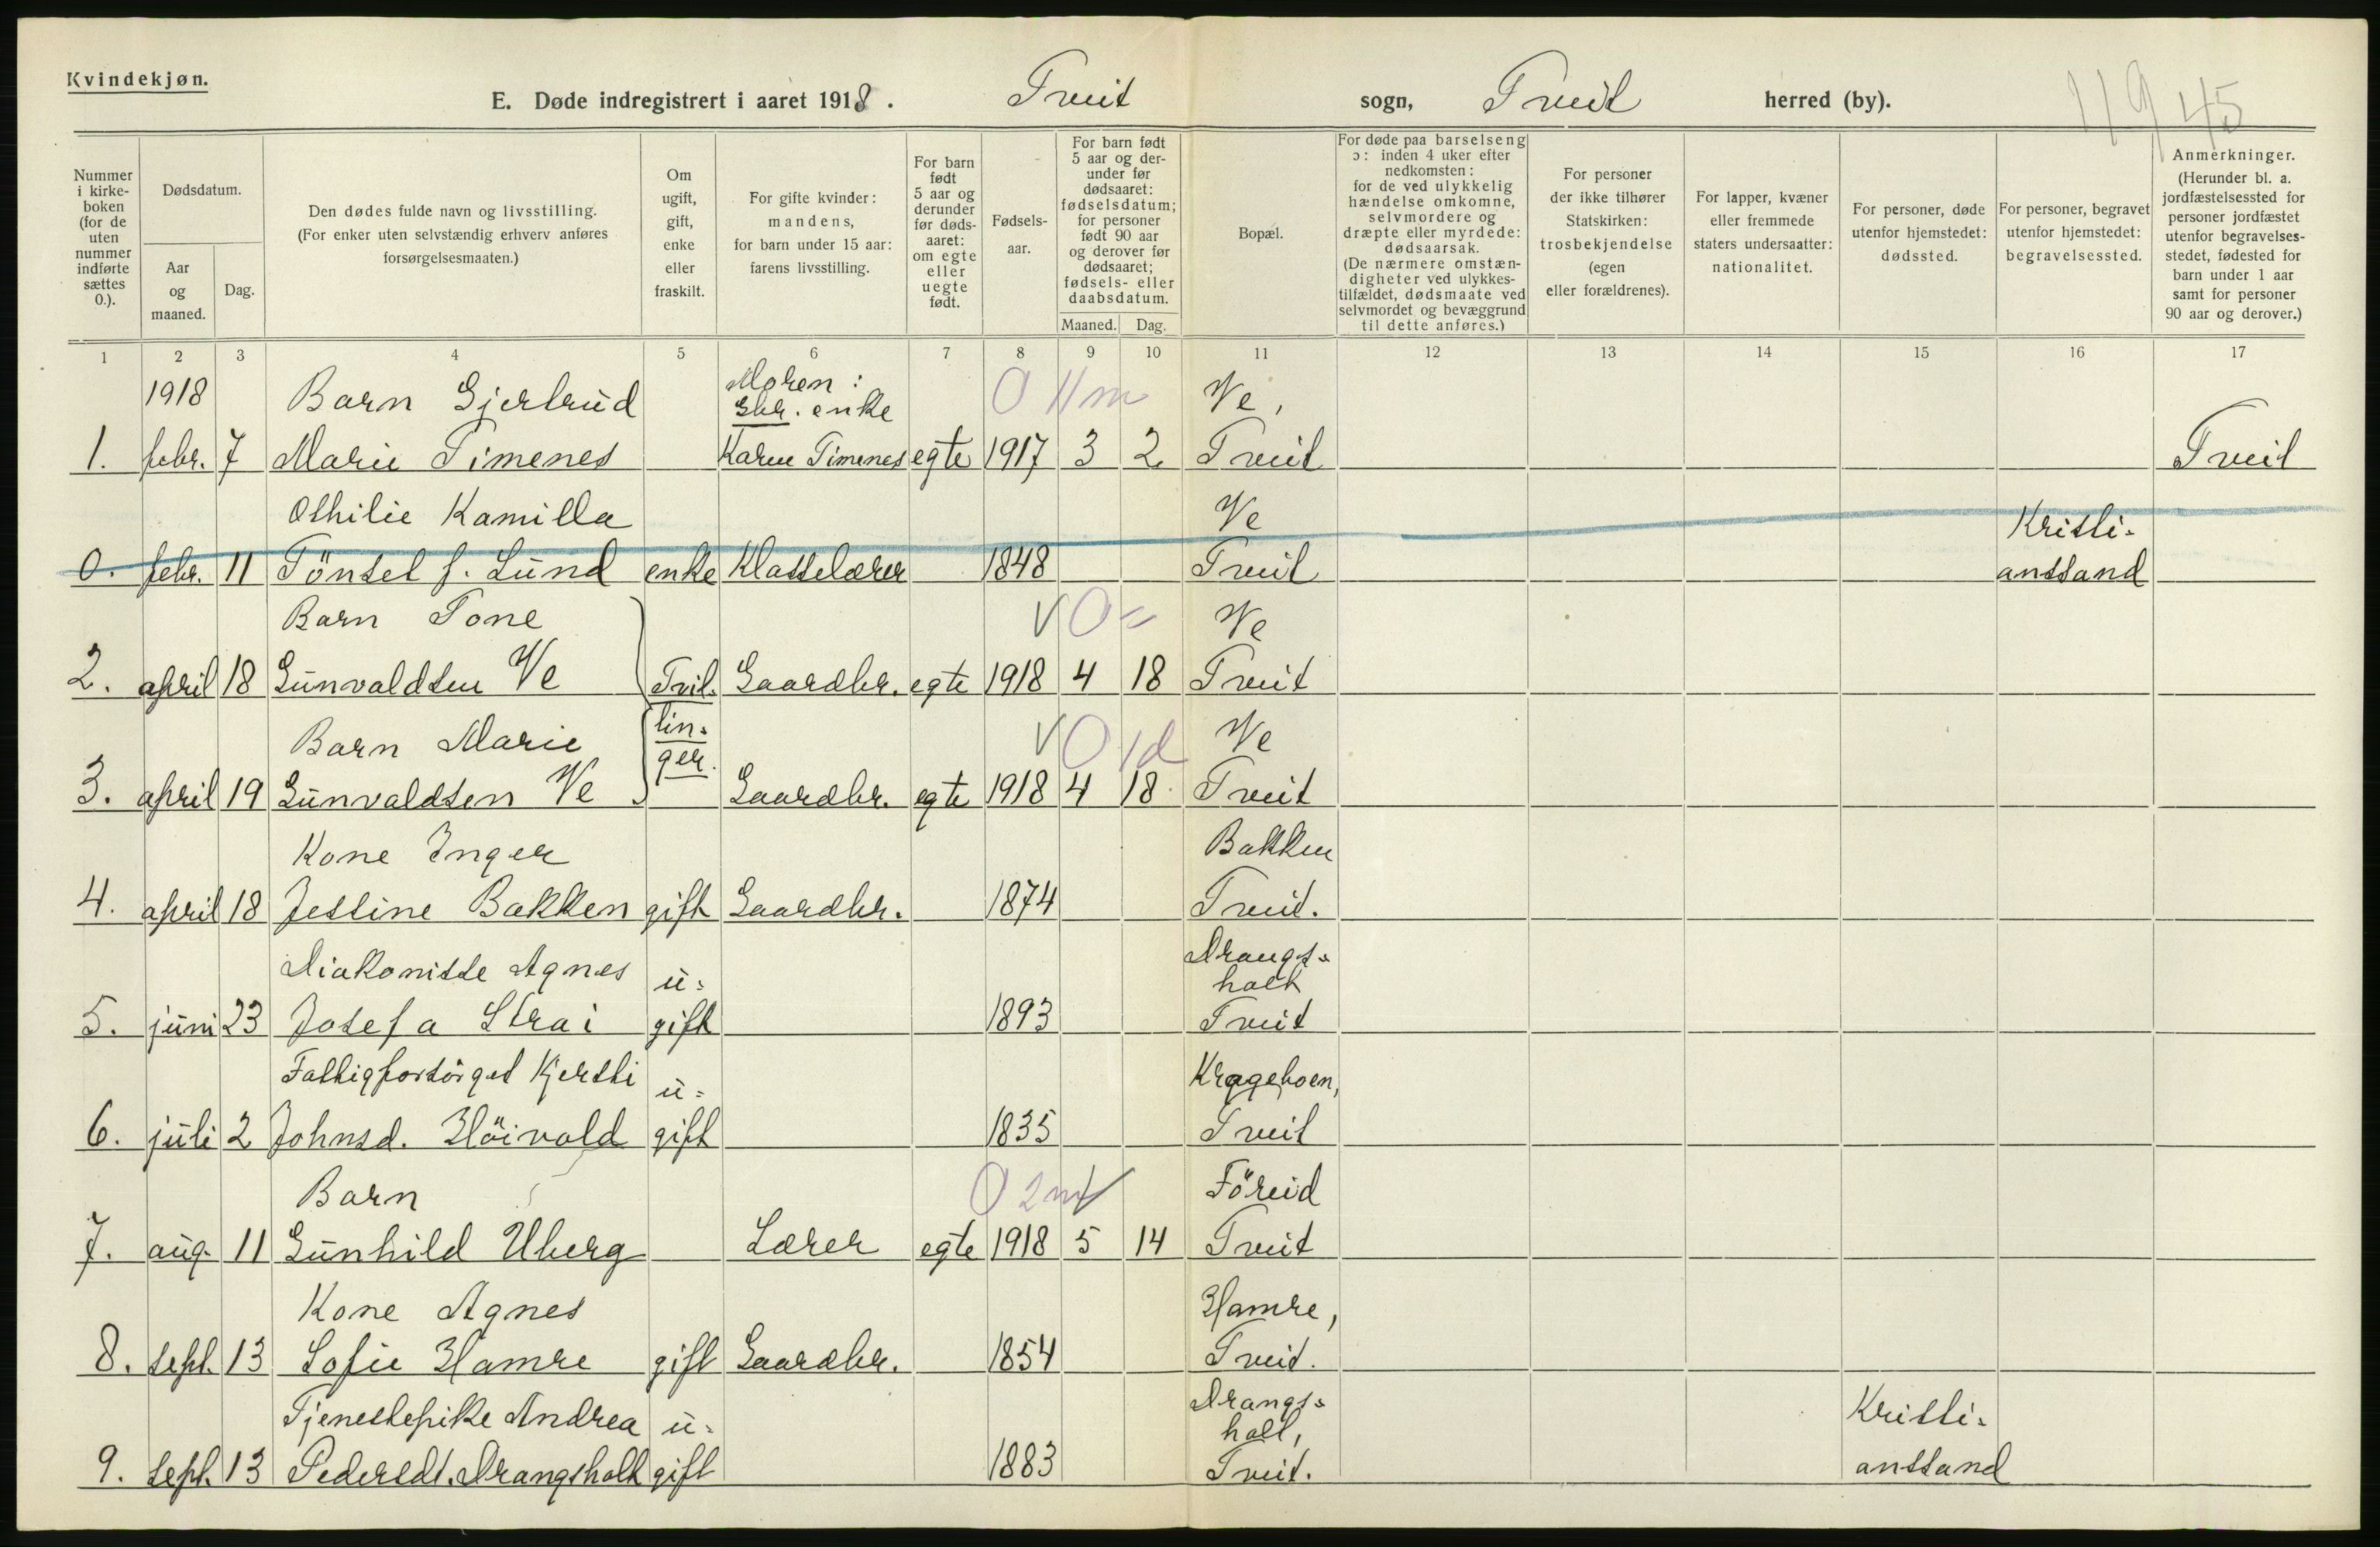 Kvindekjøn.
E. Døde indregistrert i aaret 1918. Tveit sogn, Tveit herred (by).
119 45
Nummer i kirke-boken (for de uten nummer indførte sættes 0.).
Dødsdatum.
Aar og maaned.
Dag.
Den dødes fulde navn og livsstilling.
(For enker uten selvstændig erhverv anføres
forsørgelsesmaaten.)
Om ugift, gift, enke eller fraskilt.
For gifte kvinder: mandens, for barn under 15 aar: farens livsstilling.
For barn født 5 aar og derunder før døds-aaret: om egte eller uegte født.
Fødsels-aar.
For barn født 5 aar og der-under før dødsaaret: fødselsdatum; for personer født 90 aar og derover før dødsaaret; fødsels- eller daabsdatum.
Maaned. Dag.
Bopæl.
For døde paa barselseng ɔ: inden 4 uker efter nedkomsten: for de ved ulykkelig hændelse omkomne, selvmordere og dræpte eller myrdede: dødsaarsak. (De nærmere omstæn-digheter ved ulykkes-tilfældet, dødsmaate ved selvmordet og bevæggrund til dette anføres.)
For personer der ikke tilhører Statskirken: trosbekjendelse (egen eller forældrenes).
For lapper, kvæner eller fremmede staters undersaatter: nationalitet.
For personer, døde utenfor hjemstedet: dødssted.
For personer, begravet utenfor hjemstedet: begravelsessted.
Anmerkninger. (Herunder bl. a. jordfæstelsessted for personer jordfæstet utenfor begravelses-stedet, fødested for barn under 1 aar samt for personer 90 aar og derover.)
1 2 3 4 5 6 7 8 9 10 11 12 13 14 15 16 17
Moren:
1918 Barn Gjertrud Gbr. enke 0 11 m Ve,
1. febr. 7 Marie Timenes Karen Timenes egte 1917 3 2 Tveit Tveit
Othilie Kamilla Ve Kristi-
0. febr. 11 Tönsel f. Lund enke Klasselærer 1848 Tveit anssand
Barn Tone V 0 = Ve
2. april 18 Gunvaldsen Ve Tvil- Gaardbr. egte 1918 4 18 Tveit
Barn Marie lin- V 0 1d Ve
ger.
3. april 19 Gunvaldsen Ve Gaardbr. egte 1918 4 18 Tveit
Kone Inger Bakken
4. april 18 Jessine Bakken gift Gaardbr. 1874 Tveit.
Diakonisse Agnes u- Drangs-
holt
5. juni 23 Josefa Strai gift 1893 Tveit
Fattigforsörget Kjersti u- Krageboen,
6. juli 2 Johnsd. Höivold gift 1835 Tveit
Barn 0 2 m Föreid
7. aug. 11 Gunhild Uberg Lærer egte 1918 5 14 Tveit
Kone Agnes Hamre,
8. sept. 13 Sofie Hamre gift Gaardbr. 1854 Tveit.
Tjenestepike Andrea u- Drangs- Kristi-
holt,
9. sept. 13 Pedersdt. Drangsholt gift 1883 Tveit. anssand